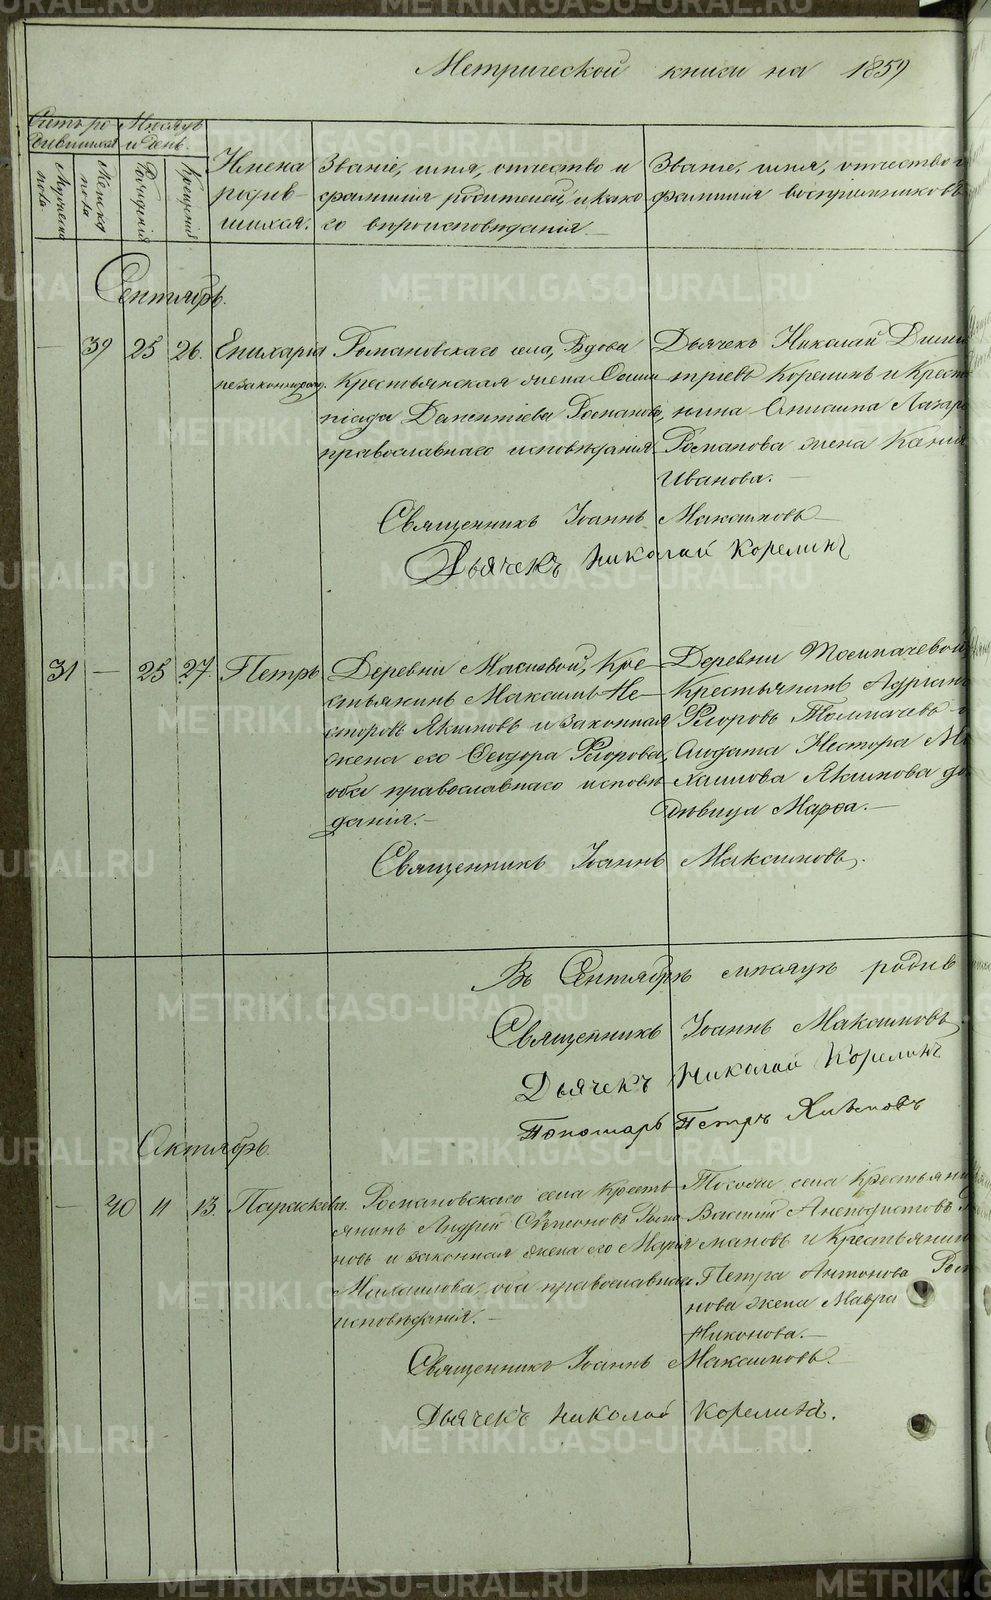 Метрической книги на 1859
Счетъ ро
дившихся
Мѣсяцъ
и день.
Мужеска
пола
Женска
пола
Рожденія
Крещенія
Имена
родив-
шихся.
Званіе, имя, отчество и
фамилія родителей, и како
го вѣроисповѣданія.
Званіе, имя, отчество и
фамилія воспріемниковъ
Сентябрь.
— 39 25 26. Епихарія
незаконнорожд.
Романовскаго села, Вдова
Крестьянская жена Олим
піада Романова,
православнаго исповѣданія.
Дьячекъ Николай Дими
тріевъ Корелинъ и Крестья
нина Анисима Лазаре
Романова жена
Иванова.—
Священникъ Іоаннъ Максимовъ
Дьячекъ Николай Корелинъ
31 — 25 27. Петръ
Деревни Кре-
стьянинъ Максимъ Не-
сторовъ Якимовъ и законная
жена его Ѳеодора Ѳедорова,
оба православнаго исповѣ
данія.—
Деревни Толмачевой
Крестьянинъ Адріанъ
Ѳедоровъ Толмачевъ
Солдата Нестора Ми
хаилова Якимова до
дѣвица Марѳа.—
Священникъ Іоаннъ Максимовъ.
Въ Сентябрѣ мѣсяцѣ родив
Священникъ Іоаннъ Максимовъ
Дьячекъ Николай Корелинъ
Пономарь Петръ
Октябрь.
— 40 11 13. Параскева.
Романовскаго села Кресть
янинъ Андрей Симеоновъ Рома
новъ и законная жена его Марія
оба православнаго
исповѣданія.—
Тогоже села Крестьянинъ
Василій Анеподистовъ Ро
мановъ и Крестьянина
Петра Антонова Рома
нова жена Мавра
Никонова.—
Священникъ Іоаннъ Максимовъ.
Дьячекъ Николай Корелинъ.
METRIKI.GASO-URAL.RU